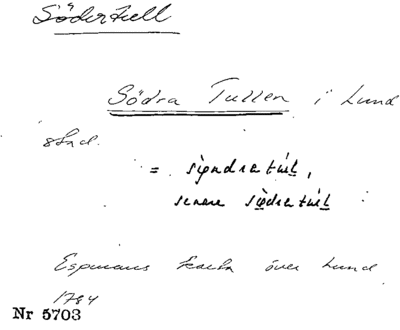 Södertull
Södra Tullen i Lund
stad.
= syndra tul,
senare södra tul
Espmans karta över Lund
1784
Nr 5703